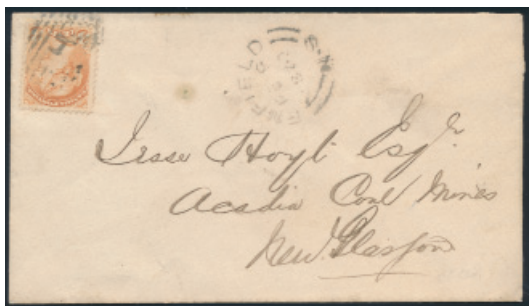 ENFIELD
N.S
Jesse Hoyt Esqr.
Acadia Coal Mines
New Glasgow